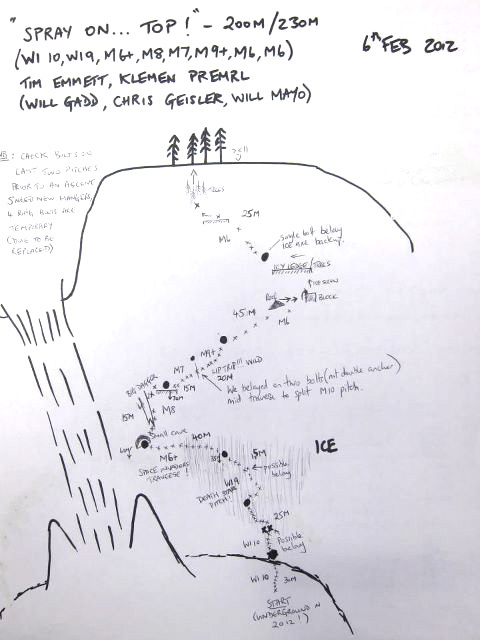 "SPRAY ON... TOP!" - 200M/230M
(WI 10, WI9, M6+, M8, M7, M9+, M6, M6)
TIM EMMETT, KLEMEN PREMRL
(WILL GADD, CHRIS GEISLER, WILL MAYO)
6TH FEB 2012
: CHECK BOLTS ON
LAST TWO PITCHES
PRIOR TO AN ASCENT
NEED NEW HANGERS,
4 RING BOLTS ARE
TEMPORARY
(DUE TO BE
REPLACED)
TREES
25M
M6
Single bolt belay
ICE are backup.
ICY LEDGE/TREES
ICE SCREW
ROCK
BLOCK
45M
M6
M9+
LIP TRIP!!! WILD
20M
M7
15M
30M
We belayed on two bolts (not double anchor)
mid traverse to split M10 pitch.
BIG DAGGER
15M
M8
Small cave
40M
M6+
SPACE INVADERS
TRAVERSE!
ICE
15M
possible
belay
WI9
DEATH STAR
PITCH!
25M
WI 10
Possible
belay
WI 10
30M
START
(UNDERGROUND IN
2012!)